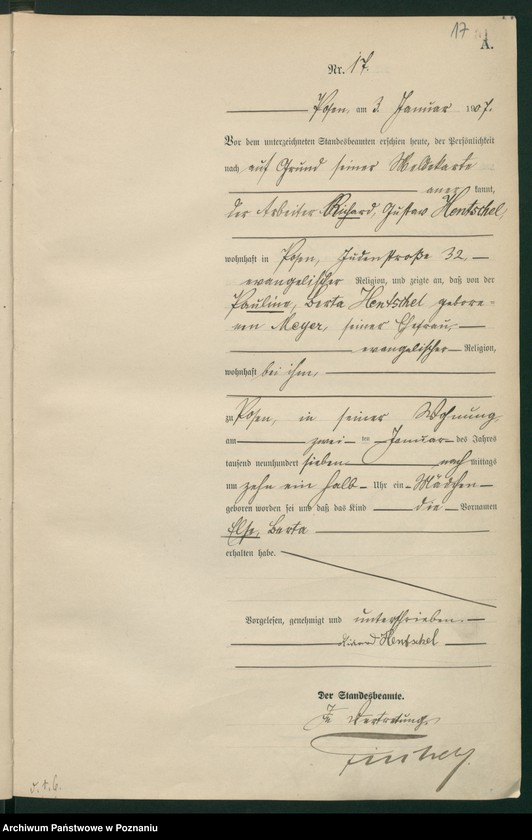 17
A.
Nr. 17.
Posen, am 3. Januar 1907.
Vor dem unterzeichneten Standesbeamten erschien heute, der Persönlichkeit
nach auf Grund seiner Meldekarte
aner kannt,
der Arbeiter Richard, Gustav Hentschel,
wohnhaft in Posen, Judenstraße 32,
evangelischer Religion, und zeigte an, daß von der
Pauline, Berta Hentschel gebore-
nen Meyer, seiner Ehefrau,
evangelischer Religion,
wohnhaft bei ihm,
zu Posen, in seiner Wohnung,
am zwei ten Januar des Jahres
tausend neunhundert sieben nach mittags
um zehn ein halb Uhr ein Mädchen
geboren worden sei und daß das Kind die Vornamen
Else, Berta
erhalten habe.
Vorgelesen, genehmigt und unterschrieben.
Richard Hentschel
Der Standesbeamte.
In Vertretung
Archiwum Państwowe w Poznaniu